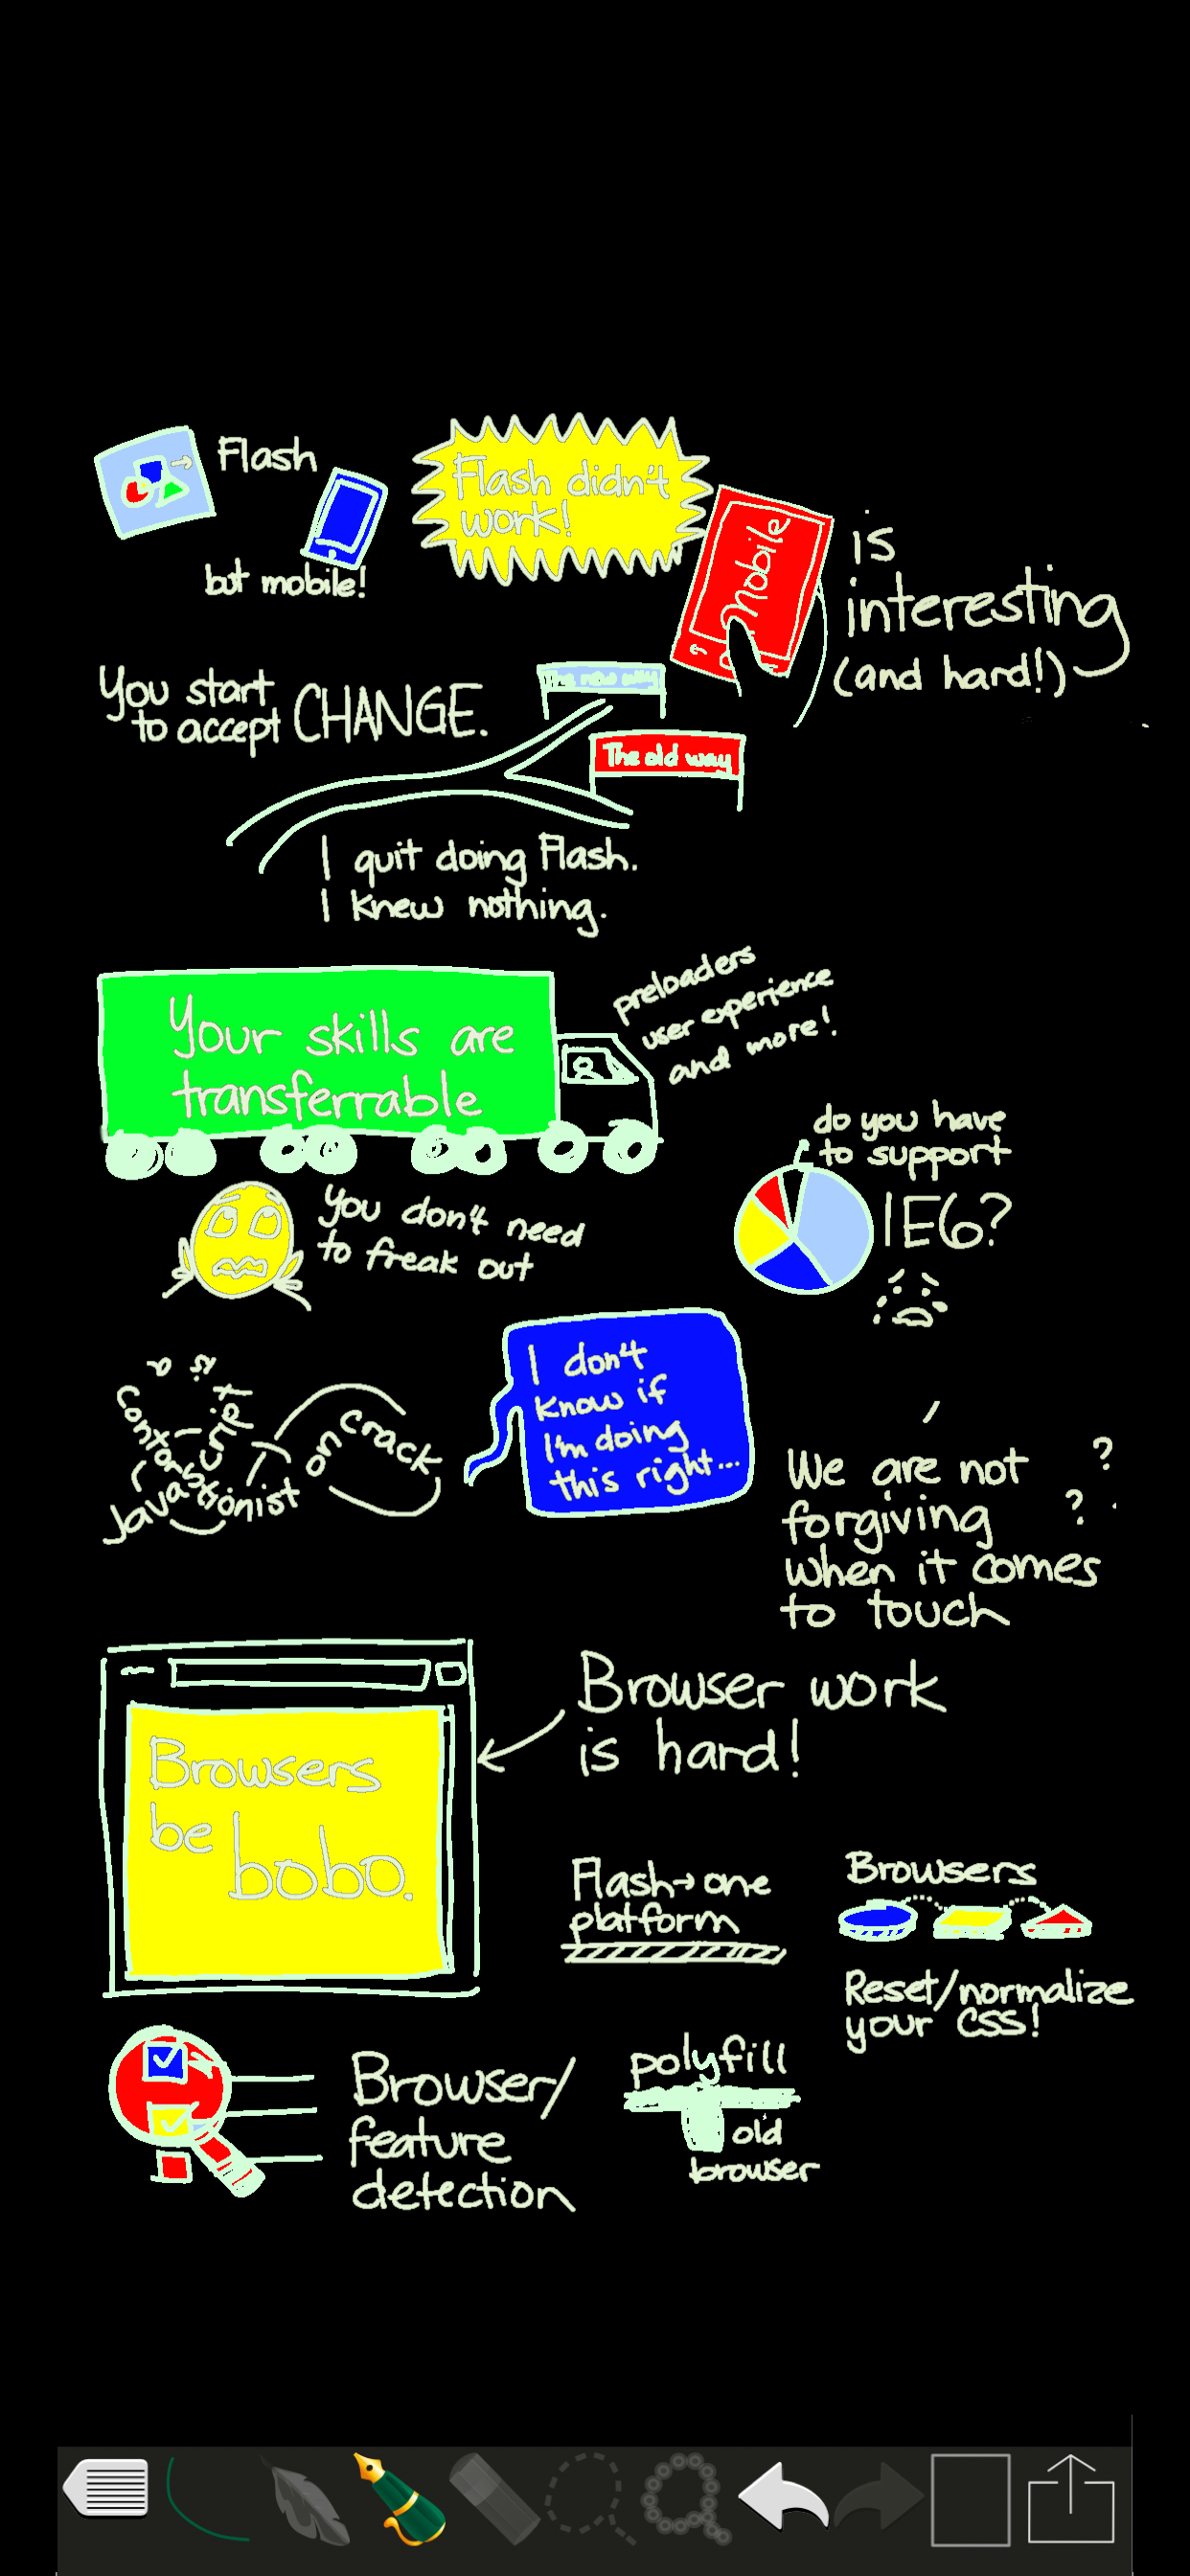 Flash
but mobile!
Flash didn't
work!
mobile
is
interesting
(and hard!)
You start
to accept CHANGE.
The new way
The old way
I quit doing Flash.
I knew nothing.
Your skills are
transferrable
preloaders
user experience
and more!
You don't need
to freak out
do you have
to support
IE6?
Javascript
is a
contortionist
on crack
I don't
know if
I'm doing
this right...
We are not
forgiving
when it comes
to touch
?
?
Browsers
be bobo.
Browser work
is hard!
Flash→one
platform
Browsers
Reset/normalize
your CSS!
Browser/
feature
detection
polyfill
old
browser